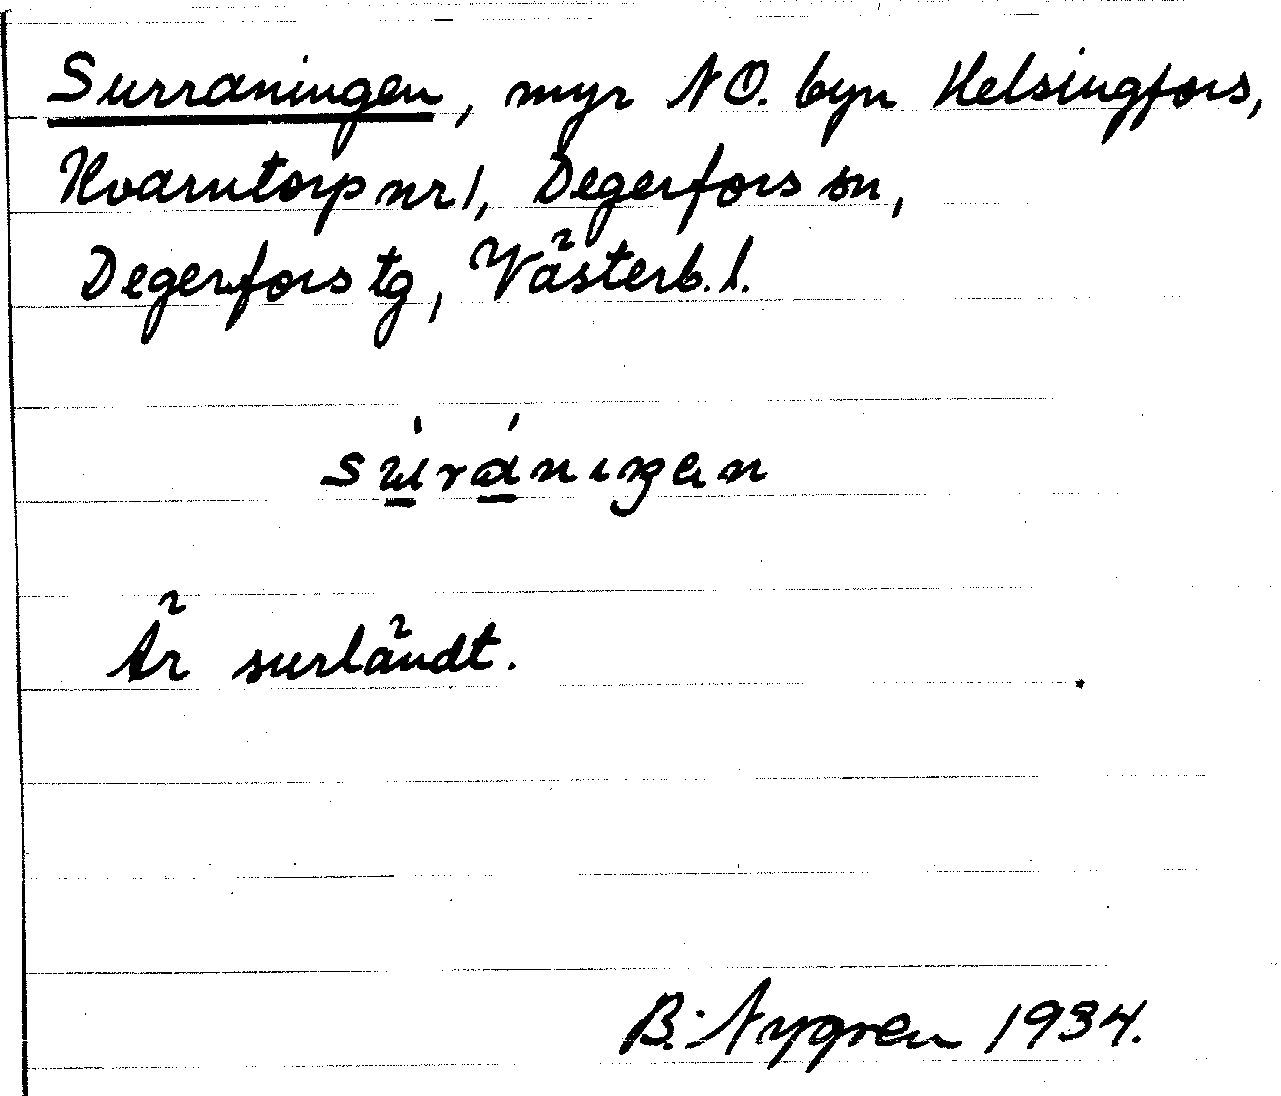 Surraningen, myr NO. byn Helsingfors,
Kvarntorp nr 1, Degerfors sn,
Degerfors tg, Västerb. l.
su̲ra̲nıŋen
Är surländt.
B. Nygren 1934.